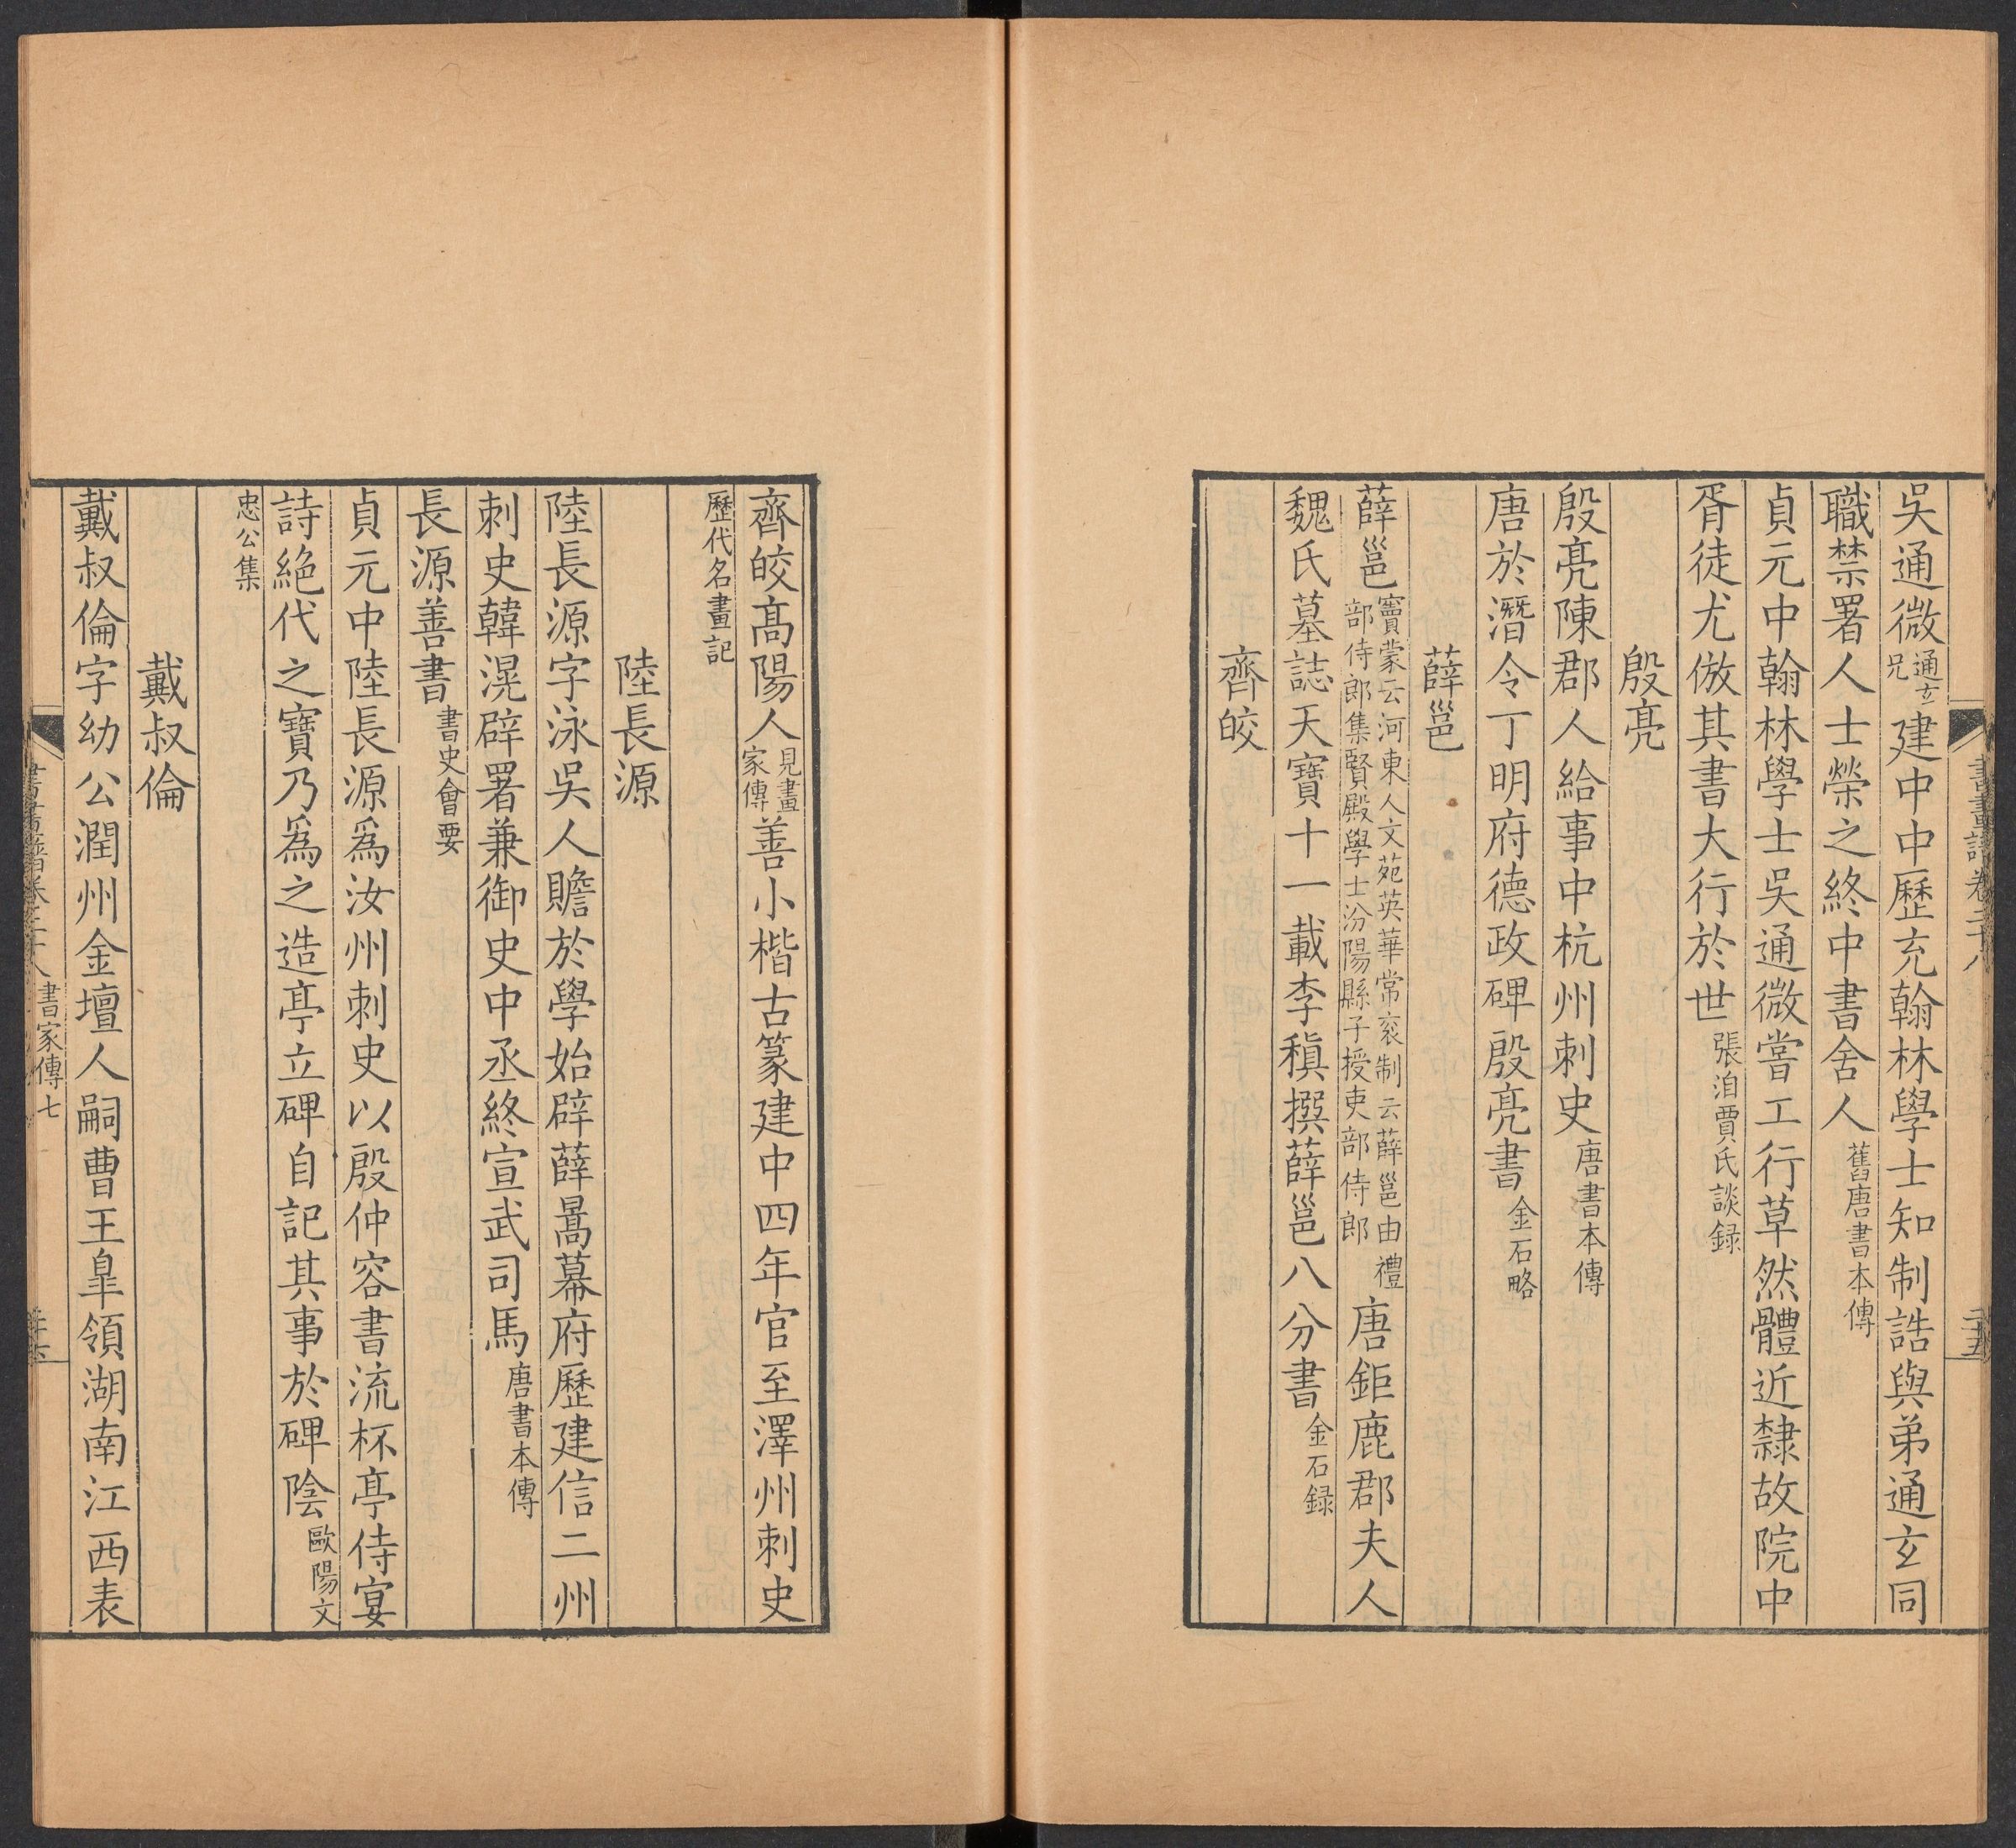 書畫譜卷二十八
二十五
吳通微通玄兄建中中歷充翰林學士知制誥與弟通玄同
職禁署人士榮之終中書舍人舊唐書本傳
貞元中翰林學士吳通微嘗工行草然體近隸故院中
胥徒尤倣其書大行於世張洎賈氏談録
殷亮
殷亮陳郡人給事中杭州刺史唐書本傳
唐於潛令丁明府德政碑殷亮書金石略
薛邕
薛邕竇蒙云河東人文苑英華常袞制云薛邕由禮部侍郎集賢殿學士汾陽縣子授吏部侍郎唐鉅鹿郡夫人
魏氏墓誌天寶十一載李稹撰薛邕八分書金石録
齊皎
齊皎高陽人見畫家傳善小楷古篆建中四年官至澤州刺史
歷代名畫記
陸長源
陸長源字泳吳人贍於學始辟薛嵩幕府歷建信二州
刺史韓滉辟署兼御史中丞終宣武司馬唐書本傳
長源善書書史會要
貞元中陸長源爲汝州刺史以殷仲容書流杯亭侍宴
詩絕代之寶乃爲之造亭立碑自記其事於碑陰歐陽文
忠公集
戴叔倫
戴叔倫字幼公潤州金壇人嗣曹王皐領湖南江西表
書家傳七